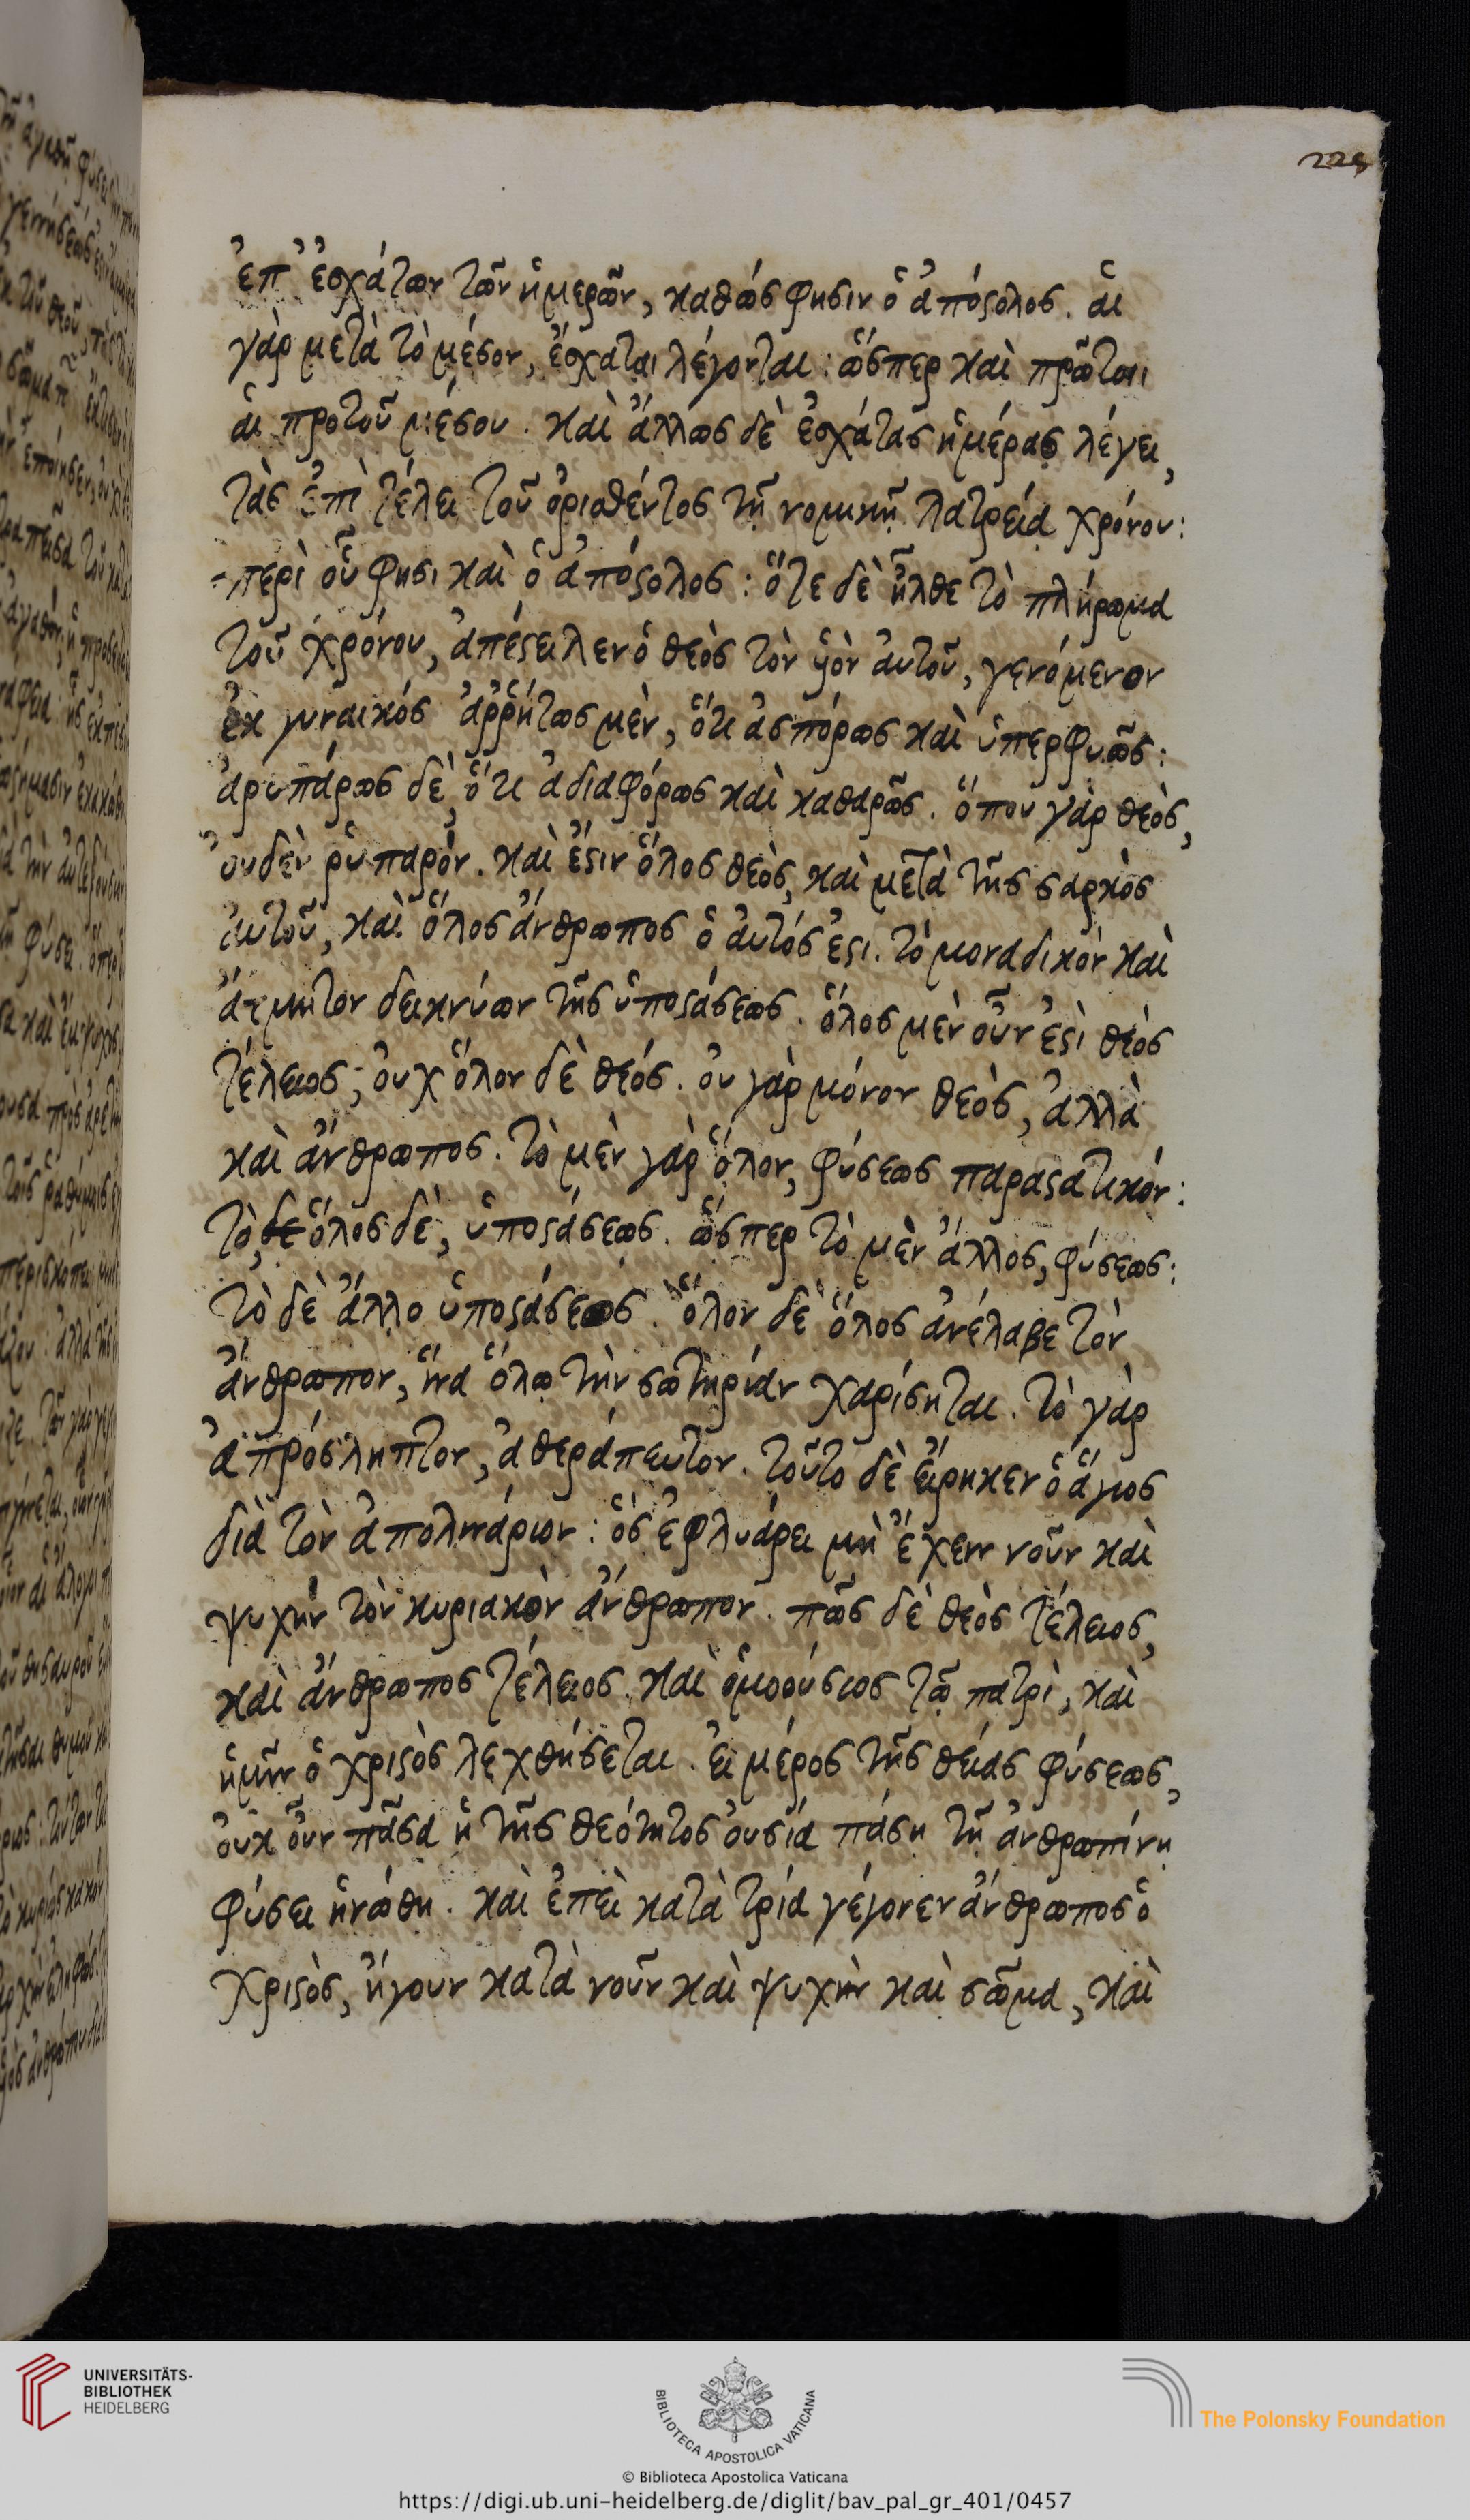 225
ἐπ' ἐσχάτων τῶν ἡμερῶν, καθώς φησιν ὁ ἀπόστολος. ἁι
γὰρ μετὰ τὸ μέσον, ἔσχαται λέγονται: ὥσπερ καὶ πρῶται
ἁι προτοῦ μέσου. καὶ ἄλλως δὲ ἐσχάτας ἡμέρας λέγει,
τὰς ἐπὶ τέλει τοῦ ὁρισθέντος τῇ νομικῇ λατρείᾳ χρόνου:
περὶ οὗ φησι καὶ ὁ ἀπόστολος: ὅτε δὲ ἦλθε τὸ πλήρωμα
τοῦ χρόνου, ἀπέστειλεν ὁ θεὸς τὸν ὑιὸν ἀυτοῦ, γενόμενον
ἐκ γυναικός ἀῤῥήτως μὲν, ὅτι ἀσπόρως καὶ ὑπερφυῶς:
ἀρυπάρως δὲ, ὅτι ἀδιαφόρως καὶ καθαρῶς. ὅπου γὰρ θεὸς,
ὀυδὲν ῥυπαρόν. καὶ ἔστιν ὅλος θεὸς, καὶ μετὰ τῆς σαρκὸς
ἀυτοῦ, καὶ ὅλος ἄνθρωπος ὁ ἀυτός ἐστι. τὸ μοναδικὸν καὶ
ἄτμητον δεικνύων τῆς ὑποστάσεως. ὅλος μὲν οὖν ἐστὶ θεὸς
τέλειος, ὀυχ ὅλον δὲ θεός. ὀυ γὰρ μόνον θεὸς, ἀλλὰ
καὶ ἄνθρωπος. τὸ μὲν γὰρ ὅλον, φύσεως παραστατικόν:
τὸ, δε ὅλος δὲ, ὑποστάσεως. ὥσπερ τὸ μὲν ἄλλος, φύσεως:
τὸ δὲ ἄλλο ὑποστάσεως. ὅλον δὲ ὅλος ἀνέλαβε τὸν
ἄνθρωπον, ἵνα ὅλῳ τὴν σωτηρίαν χαρίσηται. τὸ γὰρ
ἀπρόσληπτον, ἀθεράπευτον. τοῦτο δὲ ἔιρηκεν ὁ ἅγιος
διὰ τὸν ἀπολινάριον: ὃς ἐφλυάρει μὴ ἔχειν νοῦν καὶ
ψυχὴν τὸν κυριακὸν ἄνθρωπον. πῶς δὲ θεὸς τέλειος,
καὶ ἄνθρωπος τέλειος. καὶ ὁμοούσιος τῷ πατρὶ, καὶ
ἡμῖν ὁ χριστὸς λεχθήσεται. ἐι μέρος τῆς θείας φύσεως,
ὀυκ οὖν πᾶσα ἡ τῆς θεότητος ὀυσία πάσῃ τῇ ἀνθρωπίνῃ
φύσει ἡνώθη. καὶ ἐπεὶ κατὰ τρία γέγονεν ἄνθρωπος ὁ
χριστὸς, ἤγουν κατὰ νοῦν καὶ ψυχὴν καὶ σῶμα, καὶ
UNIVERSITÄTS-
BIBLIOTHEK
HEIDELBERG
BIBLIOTECA APOSTOLICA VATICANA
The Polonsky Foundation
© Biblioteca Apostolica Vaticana
https://digi.ub.uni-heidelberg.de/diglit/bav_pal_gr_401/0457